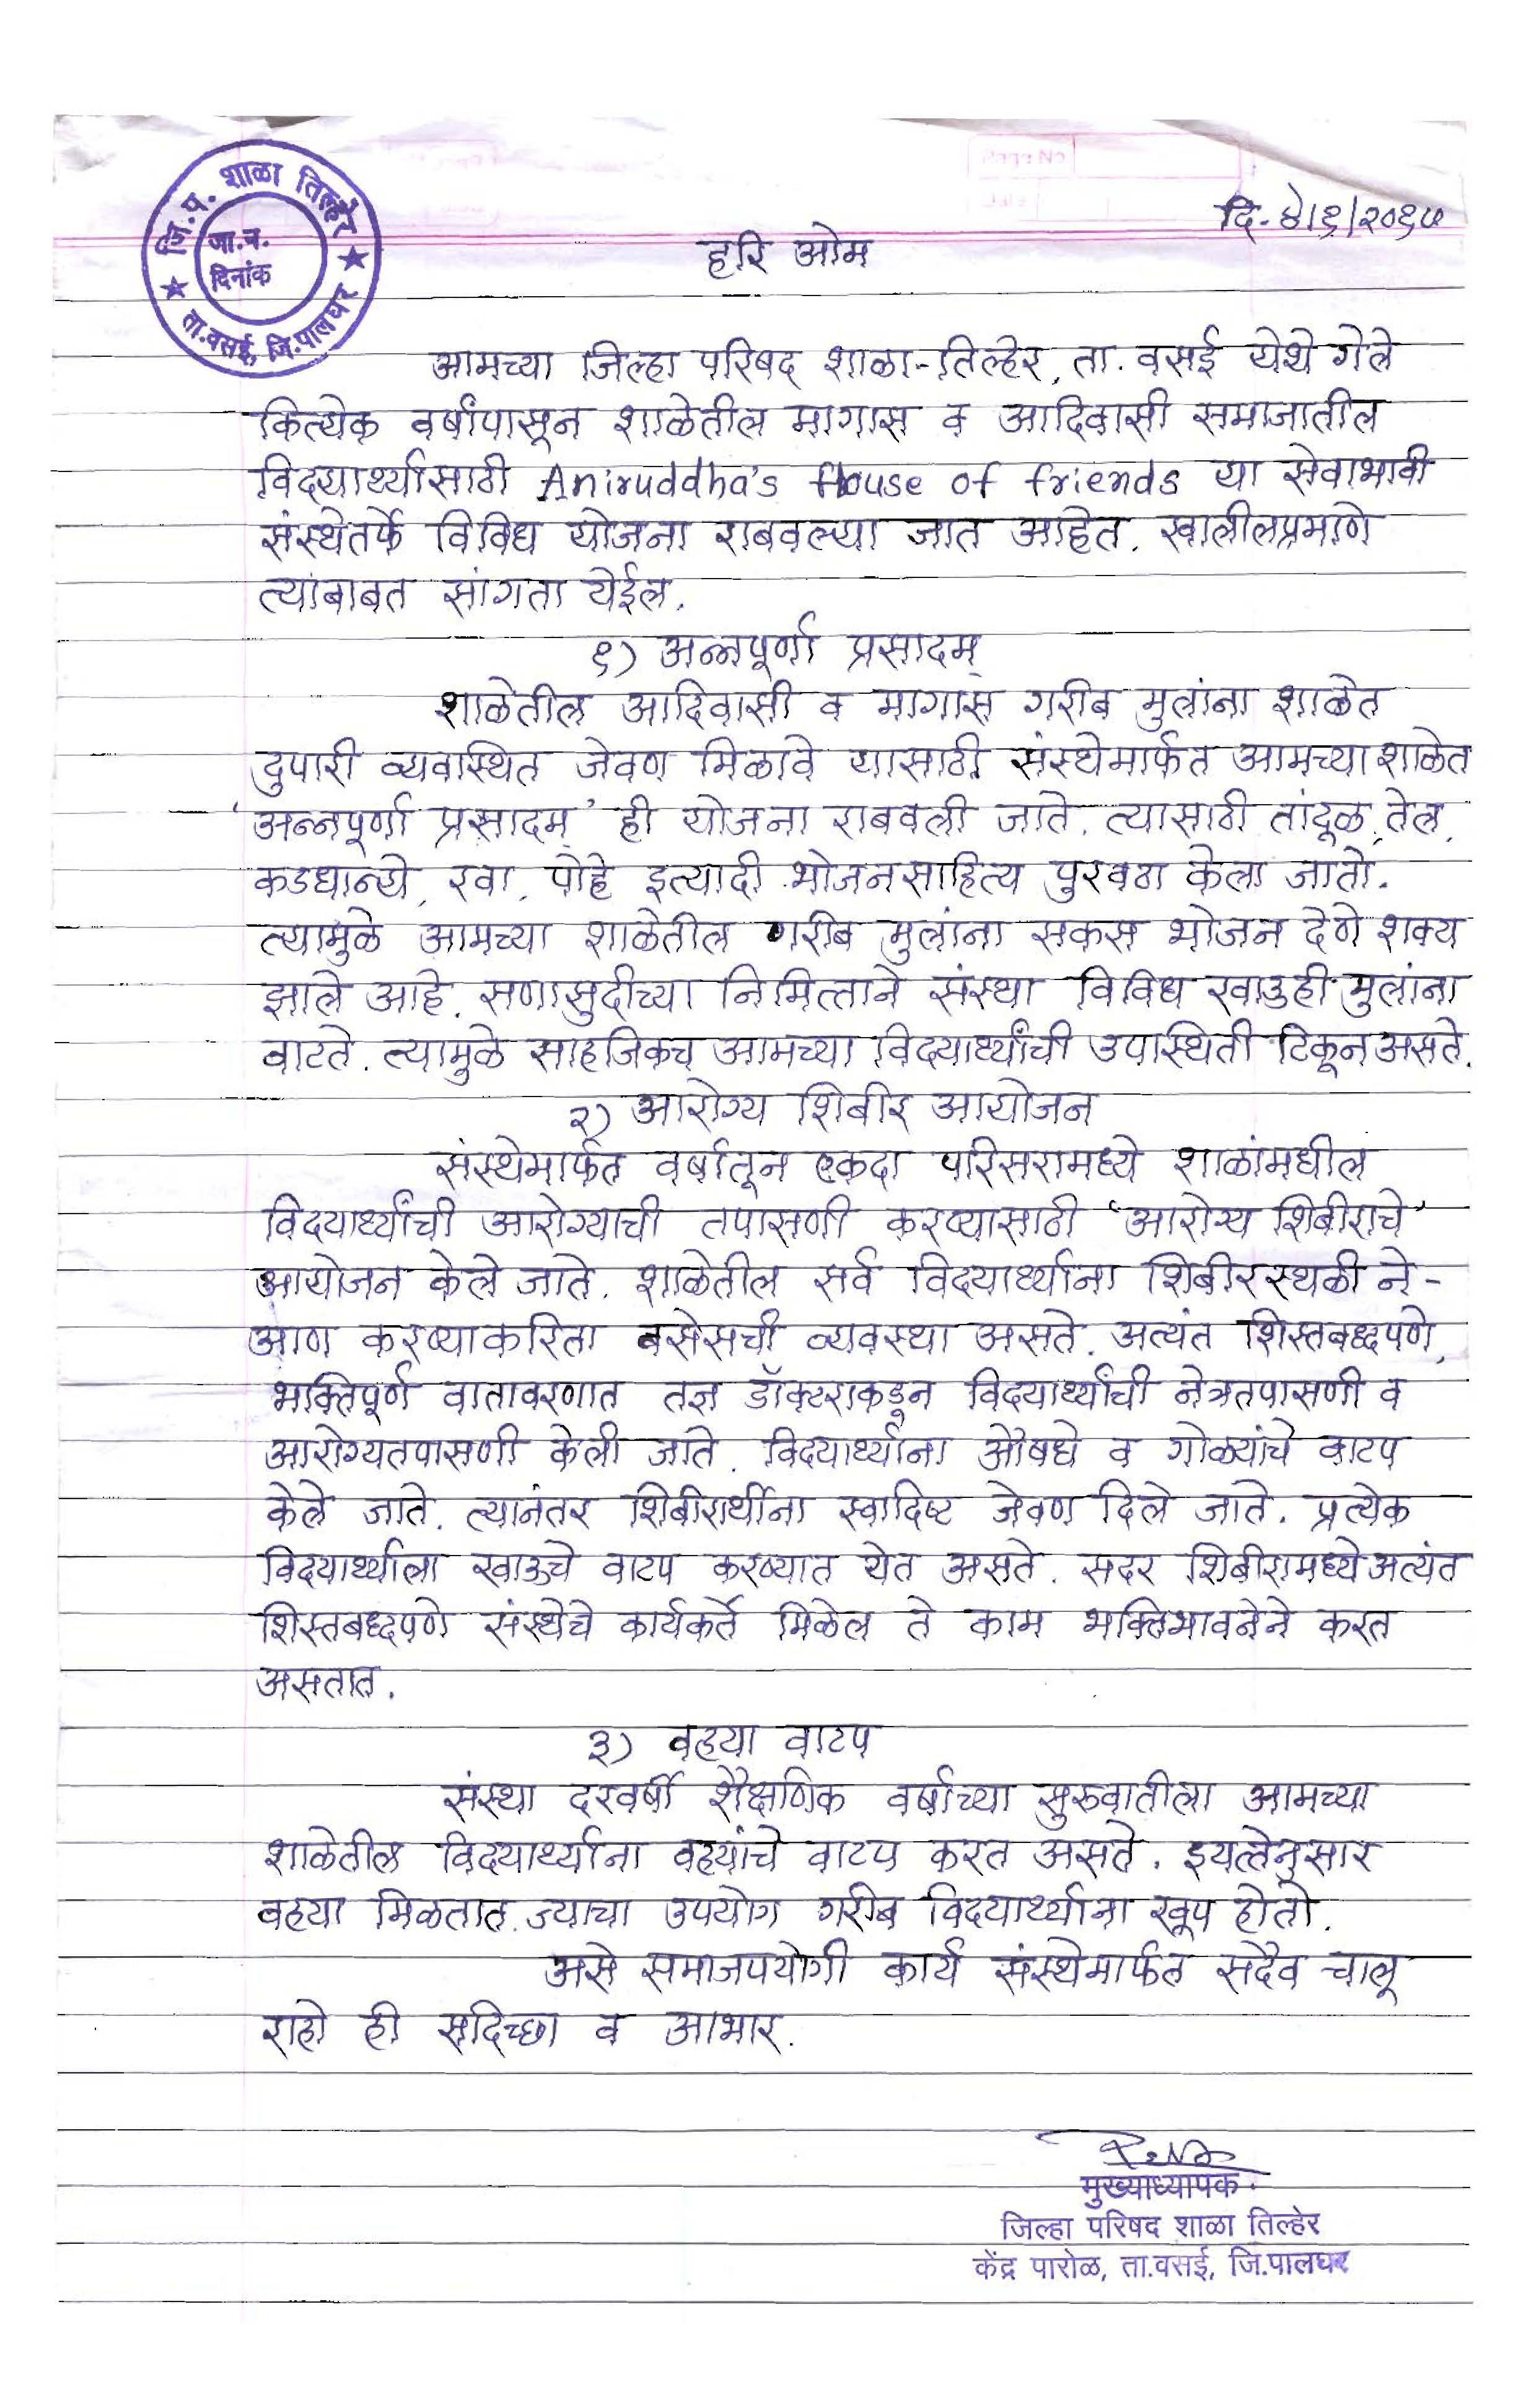 जि.प. शाळा तिल्हेर
जा.क्र.
दिनांक
ता.वसई, जि.पालघर
दि- ४/१/२०१७
हरि ओम
आमच्या जिल्हा परिषद शाळा-तिल्हेर, ता. वसई येथे गेले
कित्येक वर्षांपासून शाळेतील मागास व आदिवासी समाजातील
विदयार्थ्यांसाठी Aniruddha's House of friends या सेवाभावी
संस्थेतर्फे विविध योजना राबवल्या जात आहेत. खालीलप्रमाणे
त्यांबाबत सांगता येईल.
१) अन्नपूर्णा प्रसादम्
शाळेतील आदिवासी व मागास गरीब मुलांना शाळेत
दुपारी व्यवस्थित जेवण मिळावे यासाठी संस्थेमार्फत आमच्या शाळेत
'अन्नपूर्णा प्रसादम्' ही योजना राबवली जाते. त्यासाठी तांदूळ, तेल,
कडधान्ये, रवा, पोहे इत्यादी भोजनसाहित्य पुरवठा केला जातो.
त्यामुळे आमच्या शाळेतील गरीब मुलांना सकस भोजन देणे शक्य
झाले आहे. सणासुदीच्या निमित्ताने संस्था विविध खाउही मुलांना
वाटते. त्यामुळे साहजिकच आमच्या विदयार्थ्यांची उपस्थिती टिकून असते.
२) आरोग्य शिबीर आयोजन
संस्थेमार्फत वर्षातून एकदा परिसरामध्ये शाळांमधील
विदयार्थ्यांची आरोग्याची तपासणी करण्यासाठी 'आरोग्य शिबीराचे'
आयोजन केले जाते. शाळेतील सर्व विदयार्थ्यांना शिबीरस्थळी ने-
आण करण्याकरिता बसेसची व्यवस्था असते. अत्यंत शिस्तबद्धपणे,
भक्तिपूर्ण वातावरणात तज्ञ डॉक्टराकडून विदयार्थ्यांची नेत्रतपासणी व
आरोग्यतपासणी केली जाते. विदयार्थ्यांना औषधे व गोळ्यांचे वाटप
केले जाते. त्यानंतर शिबीरार्थींना स्वादिष्ट जेवण दिले जाते. प्रत्येक
विदयार्थ्याला खाऊचे वाटप करण्यात येत असते. सदर शिबीरामध्ये अत्यंत
शिस्तबद्धपणे संस्थेचे कार्यकर्ते मिळेल ते काम भक्तिभावनेने करत
असतात.
३) वहया वाटप
संस्था दरवर्षी शैक्षणिक वर्षाच्या सुरुवातीला आमच्या
शाळेतील विदयार्थ्यांना वहयांचे वाटप करत असते. इयत्तेनुसार
वहया मिळतात. ज्याचा उपयोग गरीब विदयार्थ्यांना खूप होतो.
असे समाजपयोगी कार्य संस्थेमार्फत सदैव चालू
राहो ही सदिच्छा व आभार.
मुख्याध्यापक
जिल्हा परिषद शाळा तिल्हेर
केंद्र पारोळ, ता.वसई, जि.पालघर